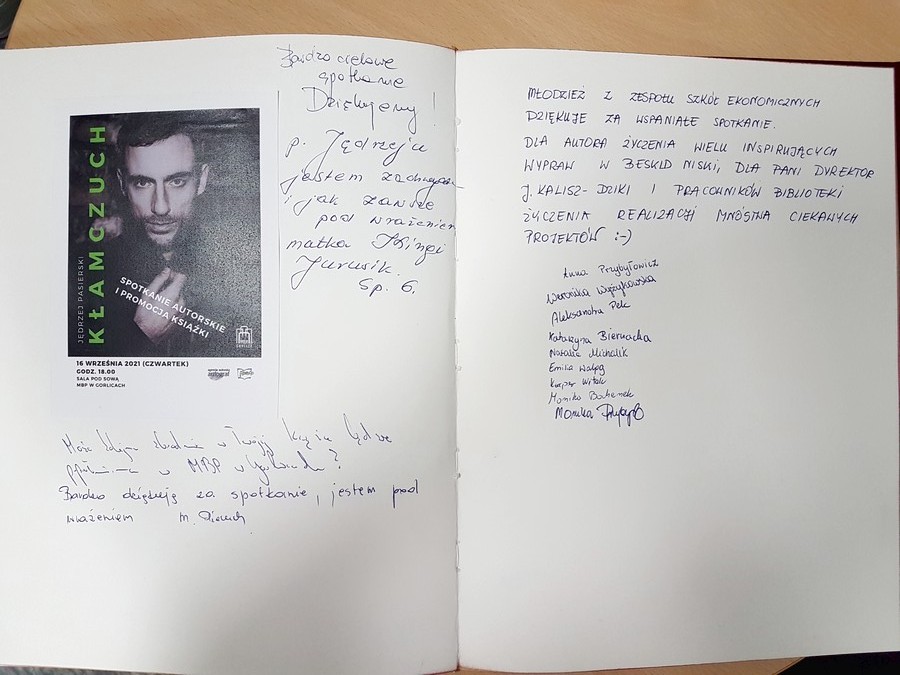 Bardzo ciekawe
spotkanie
Dziękujemy!
p. Jędrzeju
jestem
i jak zawsze
pod wrażeniem
matka Kingi
Sp. 6.
KŁAMCZUCH
JĘDRZEJ PASIERSKI
SPOTKANIE AUTORSKIE
I PROMOCJA KSIĄŻKI
16 WRZEŚNIA 2021 (CZWARTEK)
GODZ. 18.00
SALA POD SOWĄ
MBP W GORLICACH
Może w Twojej
w MBP w
Bardzo dziękuję za spotkanie, jestem pod
wrażeniem M.
MŁODZIEŻ Z ZESPOŁU SZKÓŁ EKONOMICZNYCH
DZIĘKUJE ZA WSPANIAŁE SPOTKANIE.
DLA AUTORA ŻYCZENIA WIELU INSPIRUJĄCYCH
WYPRAW W BESKID NISKI, DLA PANI DYREKTOR
J. KALISZ-DZIKI I PRACOWNIKÓW BIBLIOTEKI
ŻYCZENIA REALIZACJI MNÓSTWA CIEKAWYCH
PROJEKTÓW :-)
Anna Przybyłowicz
Weronika Wyżykowska
Aleksandra Pek
Katarzyna Biernacka
Natalia Michalik
Emilia
Kacper Witek
Monika Bochenek
Monika